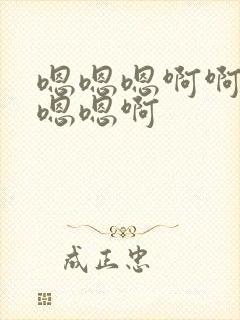 嗯嗯嗯啊啊
嗯嗯啊
成正忠